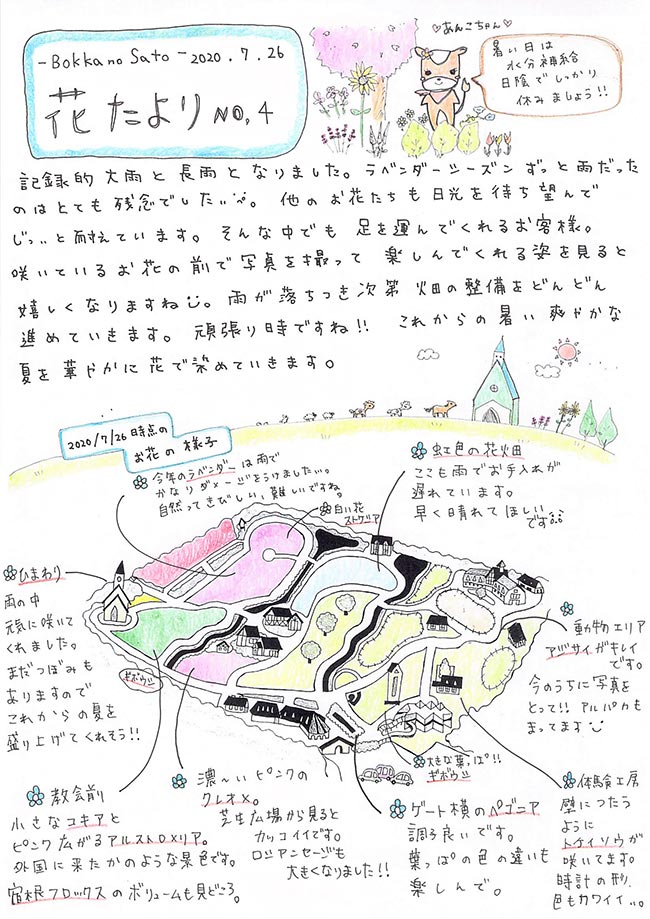 -Bokka no Sato- 2020.7.26
花たより NO,4
あんこちゃん
暑い日は
水分補給
日陰でしっかり
休みましょう!!
記録的大雨と長雨となりました。ラベンダーシーズンずっと雨だった
のはとても残念でした。他のお花たちも日光を待ち望んで
じっと耐えています。そんな中でも足を運んでくれるお客様。
咲いているお花の前で写真を撮って楽しんでくれる姿を見ると
嬉しくなりますね。雨が落ちつき次第 畑の整備をどんどん
進めていきます。頑張り時ですね!! これからの暑い爽やかな
夏を華やかに花で染めていきます。
2020/7/26時点の
お花の様子
今年のラベンダーは雨で
かなりダメージをうけました…。
自然ってきびしい、難しいですね。
白い花
ストケシア
虹色の花畑
ここも雨でお手入れが
遅れています。
早く晴れてほしい
です
ひまわり
雨の中
元気に咲いて
くれました。
まだつぼみも
ありますので
これからの夏を
盛り上げてくれそう!!
ギボウシ
動物エリア
アジサイがキレイ
です。
今のうちに写真を
とって!! アルパカも
まってます
教会前
小さなコキアと
ピンク広がるアルストロメリア。
外国に来たかのような景色です。
宿根フロックスのボリュームも見どころ。
濃〜いピンクの
クレオメ。
芝生広場から見ると
カッコイイです。
ロシアンセージも
大きくなりました!!
大きな葉っぱ!!
ギボウシ
ゲート横のベゴニア
調子良いです。
葉っぱの色の違いも
楽しんで。
体験工房
壁につたう
ように
トケイソウが
咲いてます。
時計の形、
色もカワイイ…。